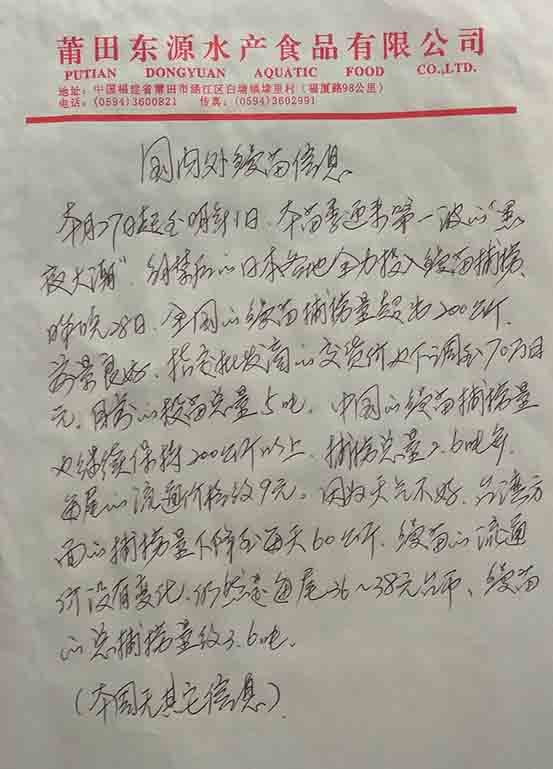 莆田东源水产食品有限公司
PUTIAN DONGYUAN AQUATIC FOOD CO.,LTD.
地址：中国福建省莆田市涵江区白塘镇埭里村（福厦路98公里）
电话：(0594)3600821 传真：(0594)3602991
国内外鳗苗信息
本月27日起至明年1日，本苗季迎来第一波的“黑
夜大潮”，的日本各地全力投入鳗苗捕捞，
昨晚28日，全国的鳗苗捕捞量超出200公斤，
前景良好，指定批发商的交货价也下调到70万日
元，目前的投苗总量5吨。中国的鳗苗捕捞量
也继续保持200公斤以上，捕捞总量2.6吨多，
每尾的流通价格约9元。因为天气不好，台湾方
面的捕捞量下降到每天60公斤，鳗苗的流通
价没有变化，仍然是每尾36~38元台币，鳗苗
的总捕捞量约3.6吨。
（本周无其它信息）